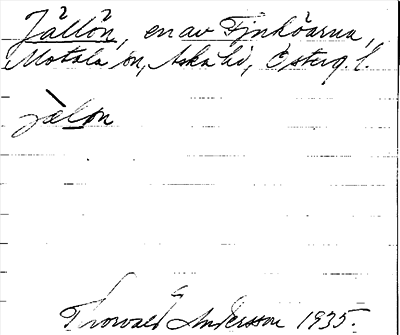 Jällön, en av Fjuköarna,
Motala sn, Aska hd, Österg. l.
jàlọn
Thorvald E Andersson 1935.